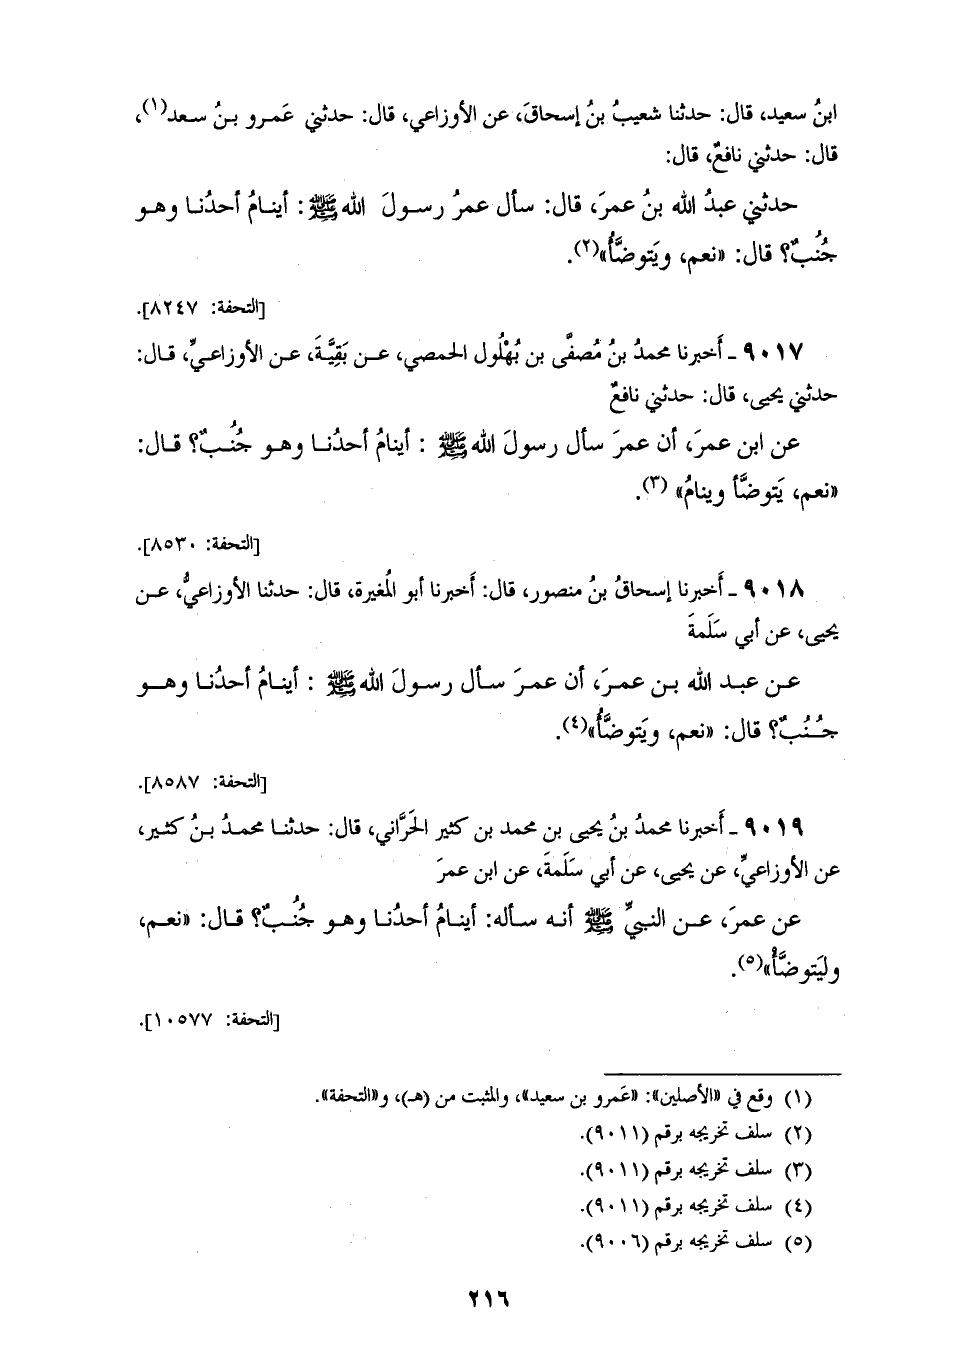 ابنُ سعيد، قال: حدثنا شعيبُ بنُ إسحاقَ، عن الأوزاعي، قال: حدثني عَمرو بنُ سعد(١)،
قال: حدثني نافعٌ، قال:
حدثني عبدُ الله بنُ عمرَ، قال: سأل عمرُ رسولَ الله ﷺ: أينامُ أحدُنا وهو
جُنُبٌ؟ قال: «نعم، ويَتوضَّأُ»(٢).
[التحفة: ٨٢٤٧].
٩٠١٧ ـ أَخبرنا محمدُ بنُ مُصفَّى بن بُهْلُول الحمصي، عن بَقِيَّةَ، عن الأوزاعيِّ، قال:
حدثني يحيى، قال: حدثني نافعٌ
عن ابن عمرَ، أن عمرَ سأل رسولَ الله ﷺ : أينامُ أحدُنا وهو جُنُبٌ؟ قال:
«نعم، يَتوضَّأ وينامُ» (٣).
[التحفة: ٨٥٣٠].
٩٠١٨ ـ أَخبرنا إسحاقُ بنُ منصور، قال: أَخبرنا أبو المُغيرة، قال: حدثنا الأوزاعيُّ، عن
يحيى، عن أبي سَلَمةَ
عن عبد الله بن عمرَ، أن عمرَ سأل رسولَ الله ﷺ : أينامُ أحدُنا وهو
جُنُبٌ؟ قال: «نعم، ويَتوضَّأُ»(٤).
[التحفة: ٨٥٨٧].
٩٠١٩ ـ أَخبرنا محمدُ بنُ يحيى بن محمد بن كثير الحَرَّاني، قال: حدثنا محمدُ بنُ كثير،
عن الأوزاعيِّ، عن يحيى، عن أبي سَلَمةَ، عن ابن عمرَ
عن عمرَ، عن النبيِّ ﷺ أنه سأله: أينامُ أحدُنا وهو جُنُبٌ؟ قال: «نعم،
وليَتوضَّأْ»(٥).
[التحفة: ١٠٥٧٧].
(١) وقع في «الأصلين»: «عَمرو بن سعيد»، والمثبت من (هـ)، و«التحفة».
(٢) سلف تخريجه برقم (٩٠١١).
(٣) سلف تخريجه برقم (٩٠١١).
(٤) سلف تخريجه برقم (٩٠١١).
(٥) سلف تخريجه برقم (٩٠٠٦).
٢١٦